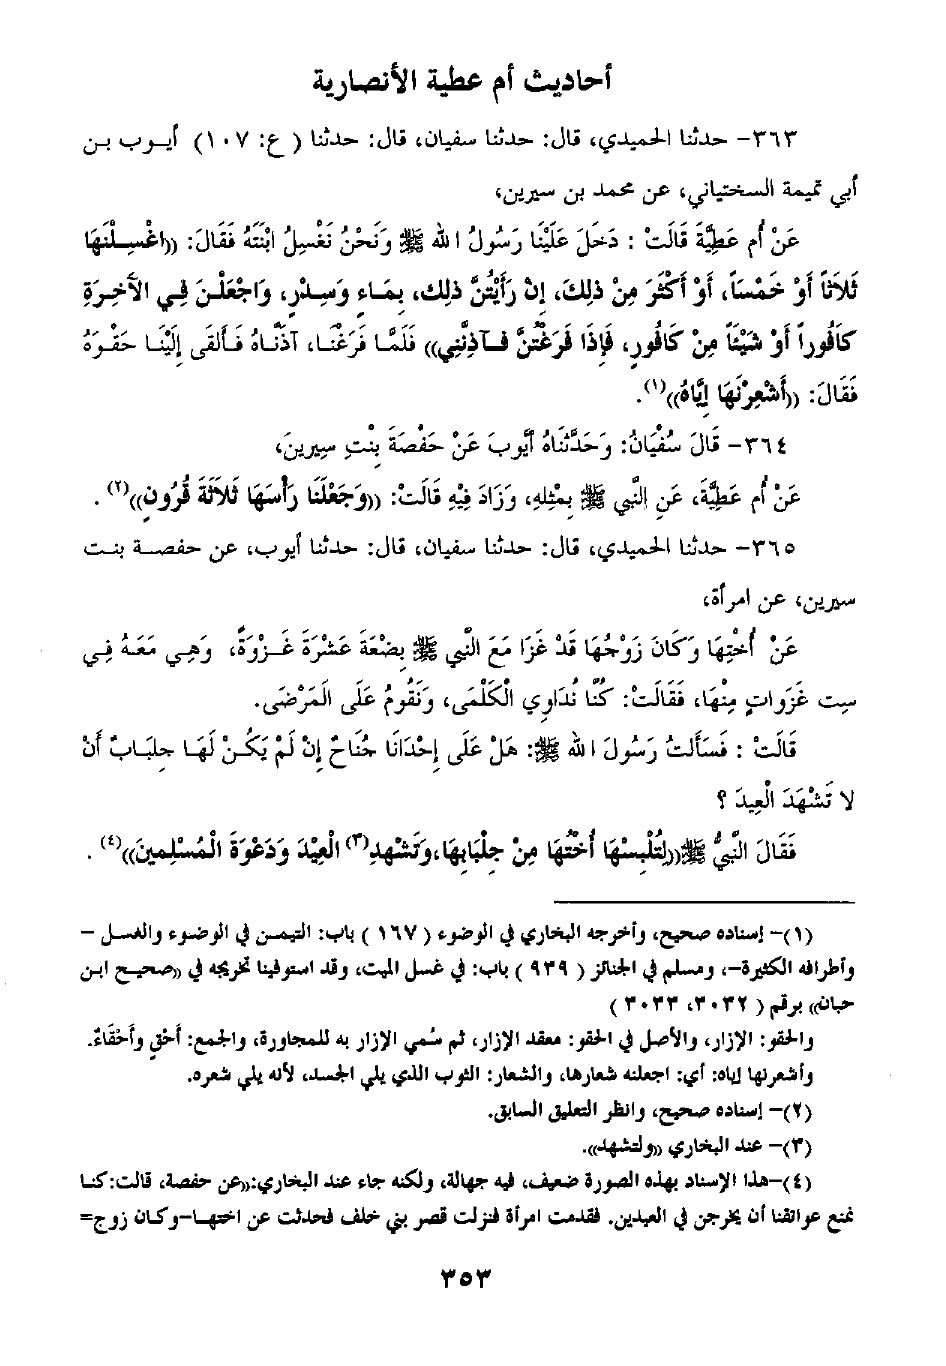 أحاديث أم عطية الأنصارية
٣٦٣- حدثنا الحميدي، قال: حدثنا سفيان، قال: حدثنا ( ع: ١٠٧) أيوب بن
أبي تميمة السختياني، عن محمد بن سيرين،
عَنْ أم عَطِيَّةَ قَالَتْ : دَخَلَ عَلَيْنَا رَسُولُ الله ﷺ وَنَحْنُ نَغْسِلُ ابْنَتَهُ فَقَالَ: ((اغْسِلْنَهَا
ثَلاَثَاً أَوْ خَمْسَاً، أَوْ أَكْثَرَ مِنْ ذلِكَ، إِنْ رَأَيْتُنَّ ذلِك، بِمَاءٍ وَسِدْرٍ، وَاجْعَلْنَ فِي الآخِرَةِ
كَافُوراً أَوْ شَيْئَاً مِنْ كَافُورٍ، فَإِذَا فَرَغْتُنَّ فَآذِنَّنِي)) فَلَمَّا فَرَغْنَا، آذَنَّاهُ فَأَلقَى إِلَيْنَا حَقْوَهُ
فَقَالَ: ((أَشْعِرْنَهَا إِيَّاهُ))(١).
٣٦٤- قَالَ سُفْيَانُ: وَحَدَّثَنَاهُ أَيُّوبَ عَنْ حَفْصَةَ بِنْتِ سِيرِينَ،
عَنْ أم عَطِيَّةَ، عَنِ النَّبِي ﷺ بِمْثلِهِ، وَزَادَ فِيْهِ قَالَتْ: ((وَجَعَلْنَا رَأْسَهَا ثَلاَثَةَ قُرُونٍ))(٢) .
٣٦٥- حدثنا الحميدي، قال: حدثنا سفيان، قال: حدثنا أيوب، عن حفصة بنت
سيرين، عن امرأة،
عَنْ أُخْتِهَا وَكَانَ زَوْجُهَا قَدْ غَزَا مَعَ النَّبِي ﷺ بِضْعَةَ عَشْرَةَ غَزْوَةً، وَهِي مَعَهُ فِي
سِت غَزَوَاتٍ مِنْهَا، فَقَالَتْ: كُنَّا نُدَاوِي الْكَلْمَى، وَنَقُومُ عَلَى الْمَرْضَى.
قَالَتْ : فَسَأَلتُ رَسُولَ الله ﷺ: هَلْ عَلَى إِحْدَانَا جُنَاحٌ إِنْ لَمْ يَكُنْ لَهَا جِلبَابٌ أَنْ
لا تَشْهَدَ الْعِيدَ ؟
فَقَالَ النَّبيُّ ﷺ((لِتُلْبِسْهَا أُخْتُهَا مِنْ جِلْبَابِهَا،وَتَشْهدِ(٣) الْعِيْدَ وَدَعْوَةَ الْمُسْلِمينَ))(٤) .
(١)- إسناده صحيح، وأخرجه البخاري في الوضوء ( ١٦٧ ) باب: التيمن في الوضوء والغسل -
وأطرافه الكثيرة-، ومسلم في الجنائز ( ٩٣٩ ) باب: في غسل الميت، وقد استوفينا تخريجه في ((صحيح ابن
حبان)) برقم ( ٣٠٣٢، ٣٠٣٣ )
والحقو: الإزار، والأصل في الحقو: معقد الإزار، ثم سُمي الإزار به للمجاورة، والجمع: أَحْقٍ وأَحْقَاءٌ.
وأشعرنها إياه: أي: اجعلنه شعارها، والشعار: الثوب الذي يلي الجسد، لأنه يلي شعره.
(٢)- إسناده صحيح، وانظر التعليق السابق.
(٣)- عند البخاري ((ولتشهد)).
(٤)-هذا الإسناد بهذه الصورة ضعيف، فيه جهالة، ولكنه جاء عند البخاري:((عن حفصة، قالت:كنا
نمنع عواتقنا أن يخرجن في العيدين. فقدمت امرأة فنزلت قصر بني خلف فحدثت عن اختها-وكان زوج=
٣٥٣